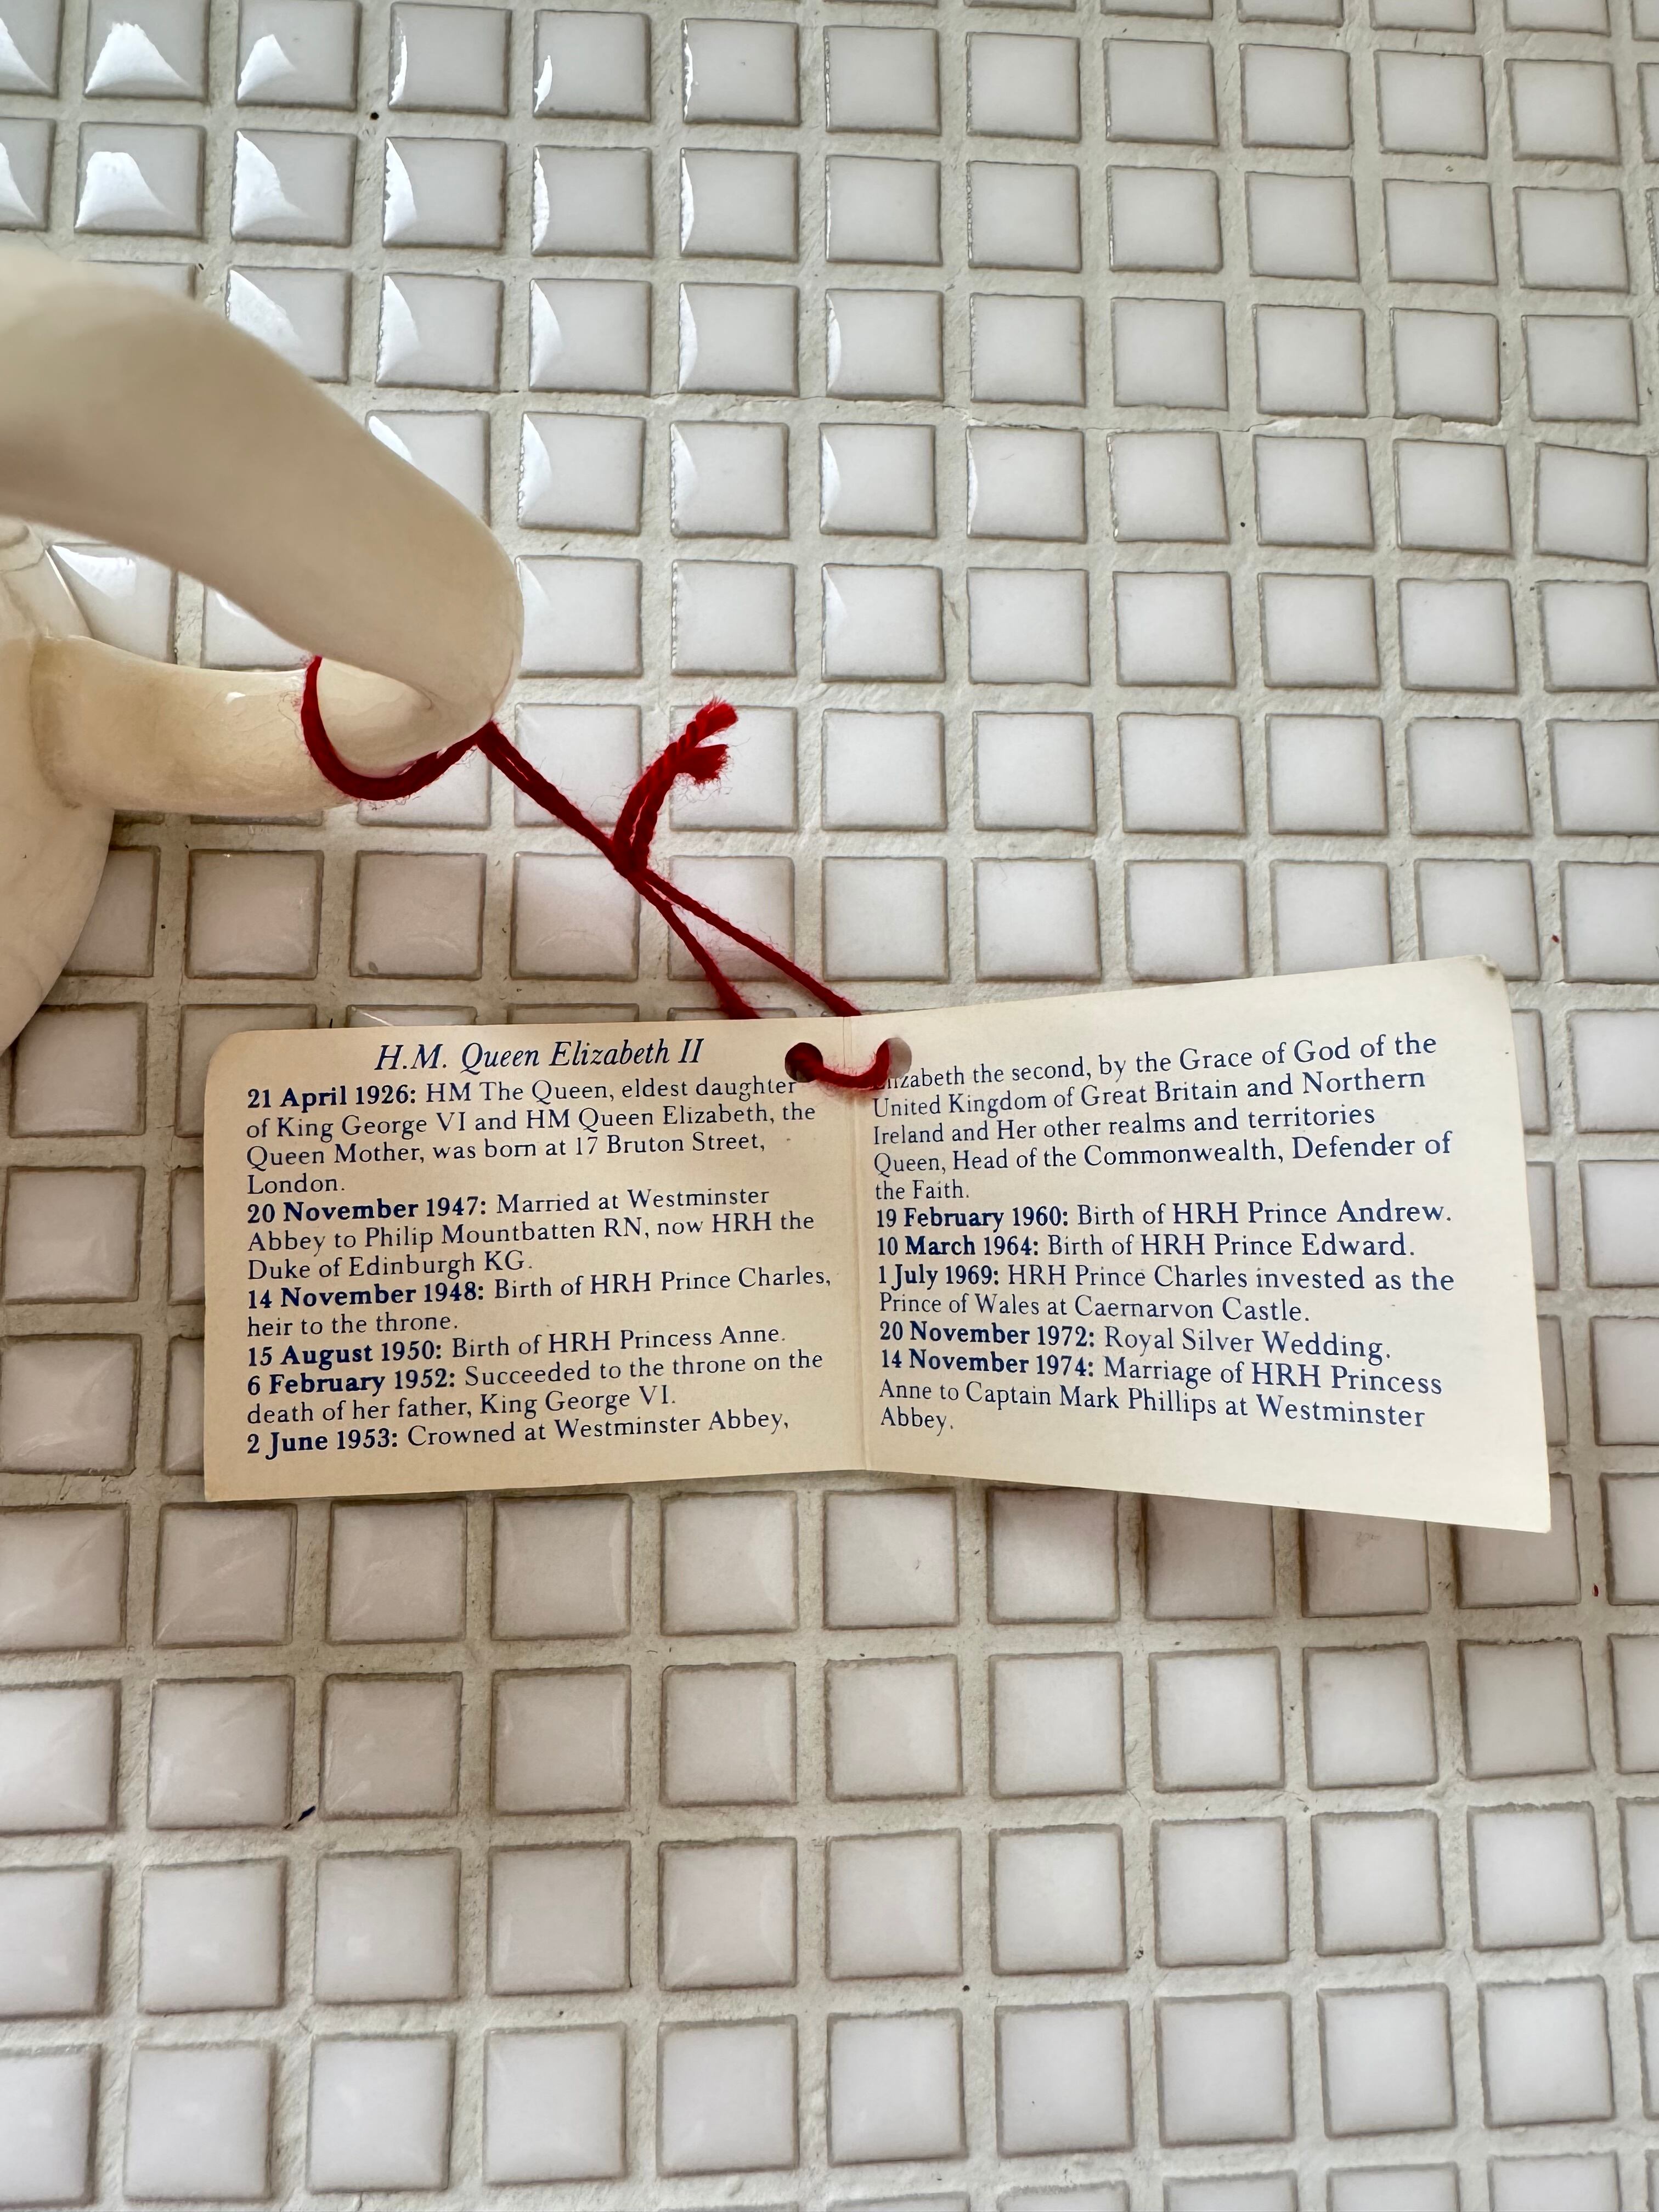 H.M. Queen Elizabeth II
21 April 1926: HM The Queen, eldest daughter
of King George VI and HM Queen Elizabeth, the
Queen Mother, was born at 17 Bruton Street,
London.
20 November 1947: Married at Westminster
Abbey to Philip Mountbatten RN, now HRH the
Duke of Edinburgh KG.
14 November 1948: Birth of HRH Prince Charles,
heir to the throne.
15 August 1950: Birth of HRH Princess Anne.
6 February 1952: Succeeded to the throne on the
death of her father, King George VI.
2 June 1953: Crowned at Westminster Abbey,
Elizabeth the second, by the Grace of God of the
United Kingdom of Great Britain and Northern
Ireland and Her other realms and territories
Queen, Head of the Commonwealth, Defender of
the Faith.
19 February 1960: Birth of HRH Prince Andrew.
10 March 1964: Birth of HRH Prince Edward.
1 July 1969: HRH Prince Charles invested as the
Prince of Wales at Caernarvon Castle.
20 November 1972: Royal Silver Wedding.
14 November 1974: Marriage of HRH Princess
Anne to Captain Mark Phillips at Westminster
Abbey.